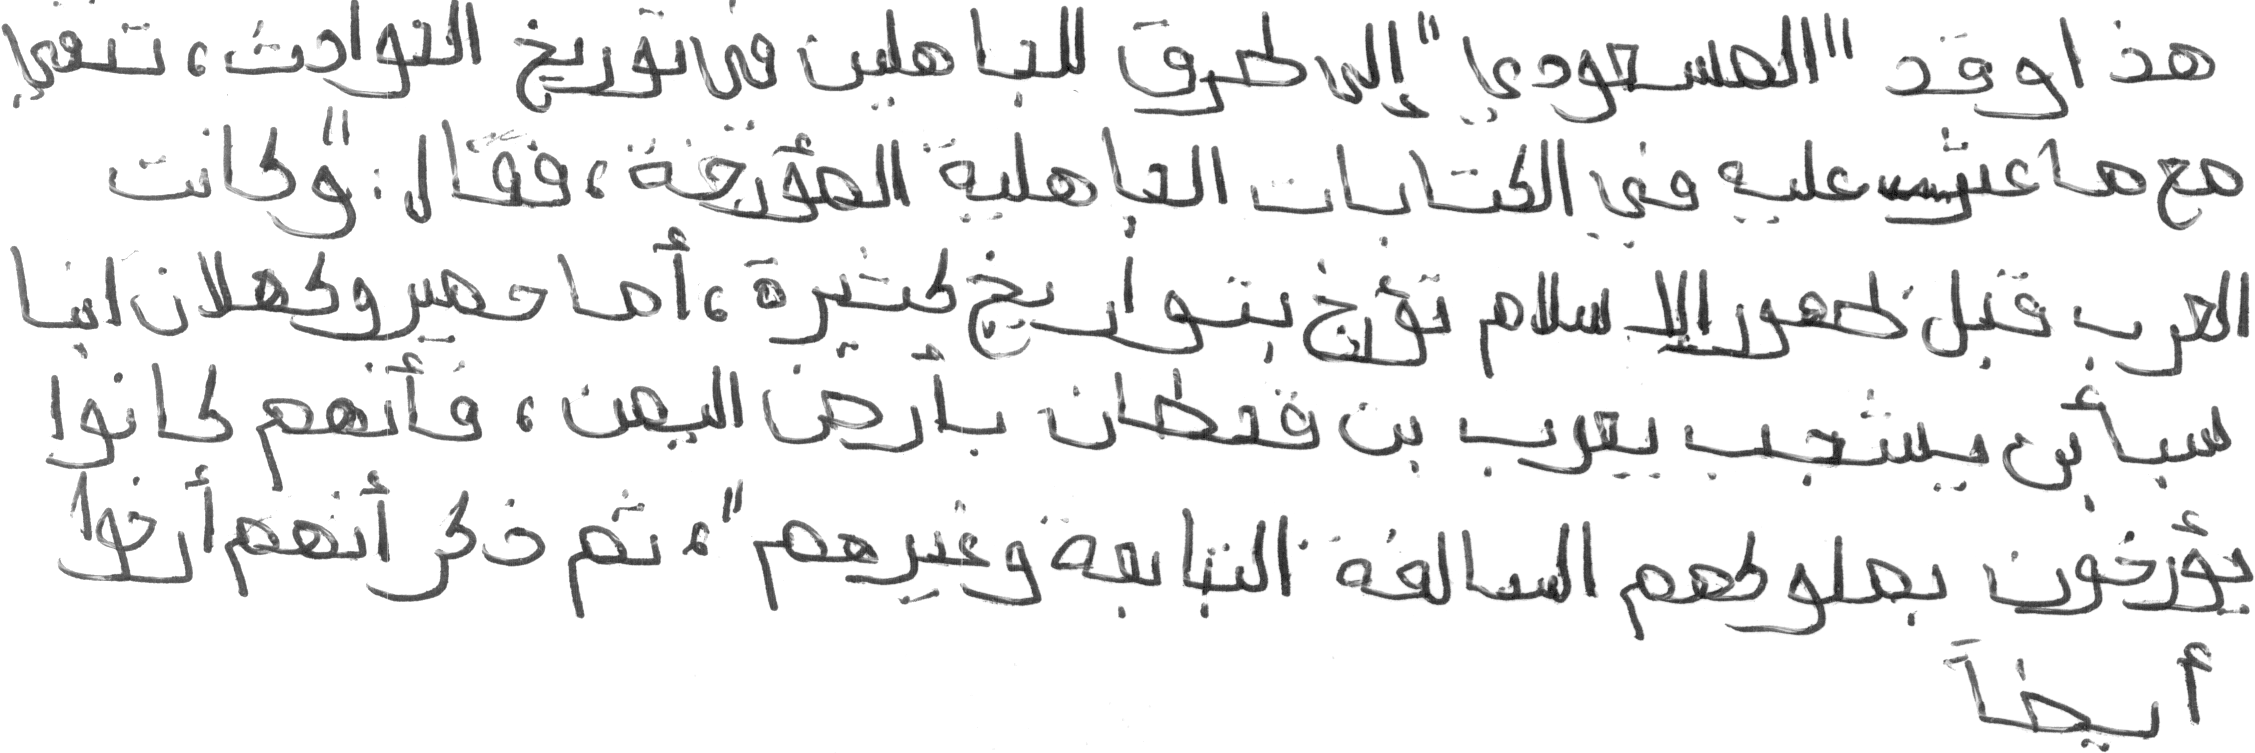 هذا وقد "المسعودي" إلى طرق للجاهلين في توريخ الحوادث، تتفي
مع ما عثر عليه في الكتابات الجاهلية المؤرخة، فقال: "وكانت
العرب قبل ظهور الاسلام تؤرخ بتواريخ كثيرة، أما حمير وكهلان ابنا
سبأ بن يشجب يعرب بن قحطان بأرض اليمن، فأنهم كانوا
يؤرخون بملوكهم السالفة التبابعة وغيرهم"، ثم ذكر أنهم أرخوا
أيضاً